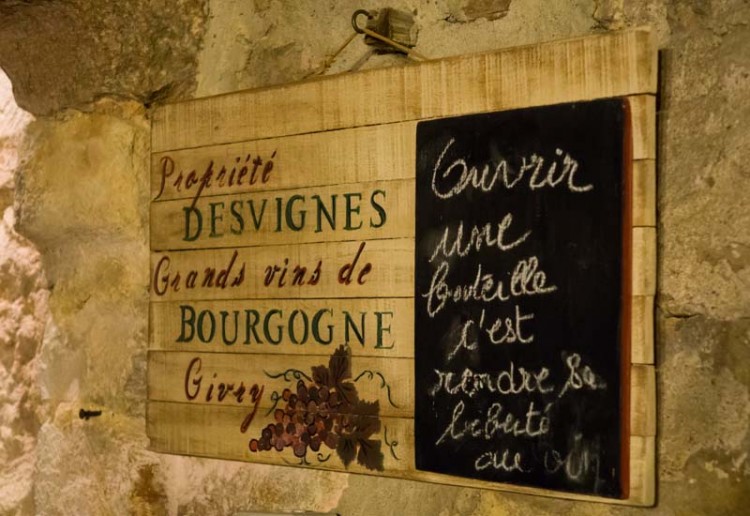 Propriété
DESVIGNES
Grands vins de
BOURGOGNE
Givry
Ouvrir
une
bouteille
c'est
rendre sa
liberté
au vin